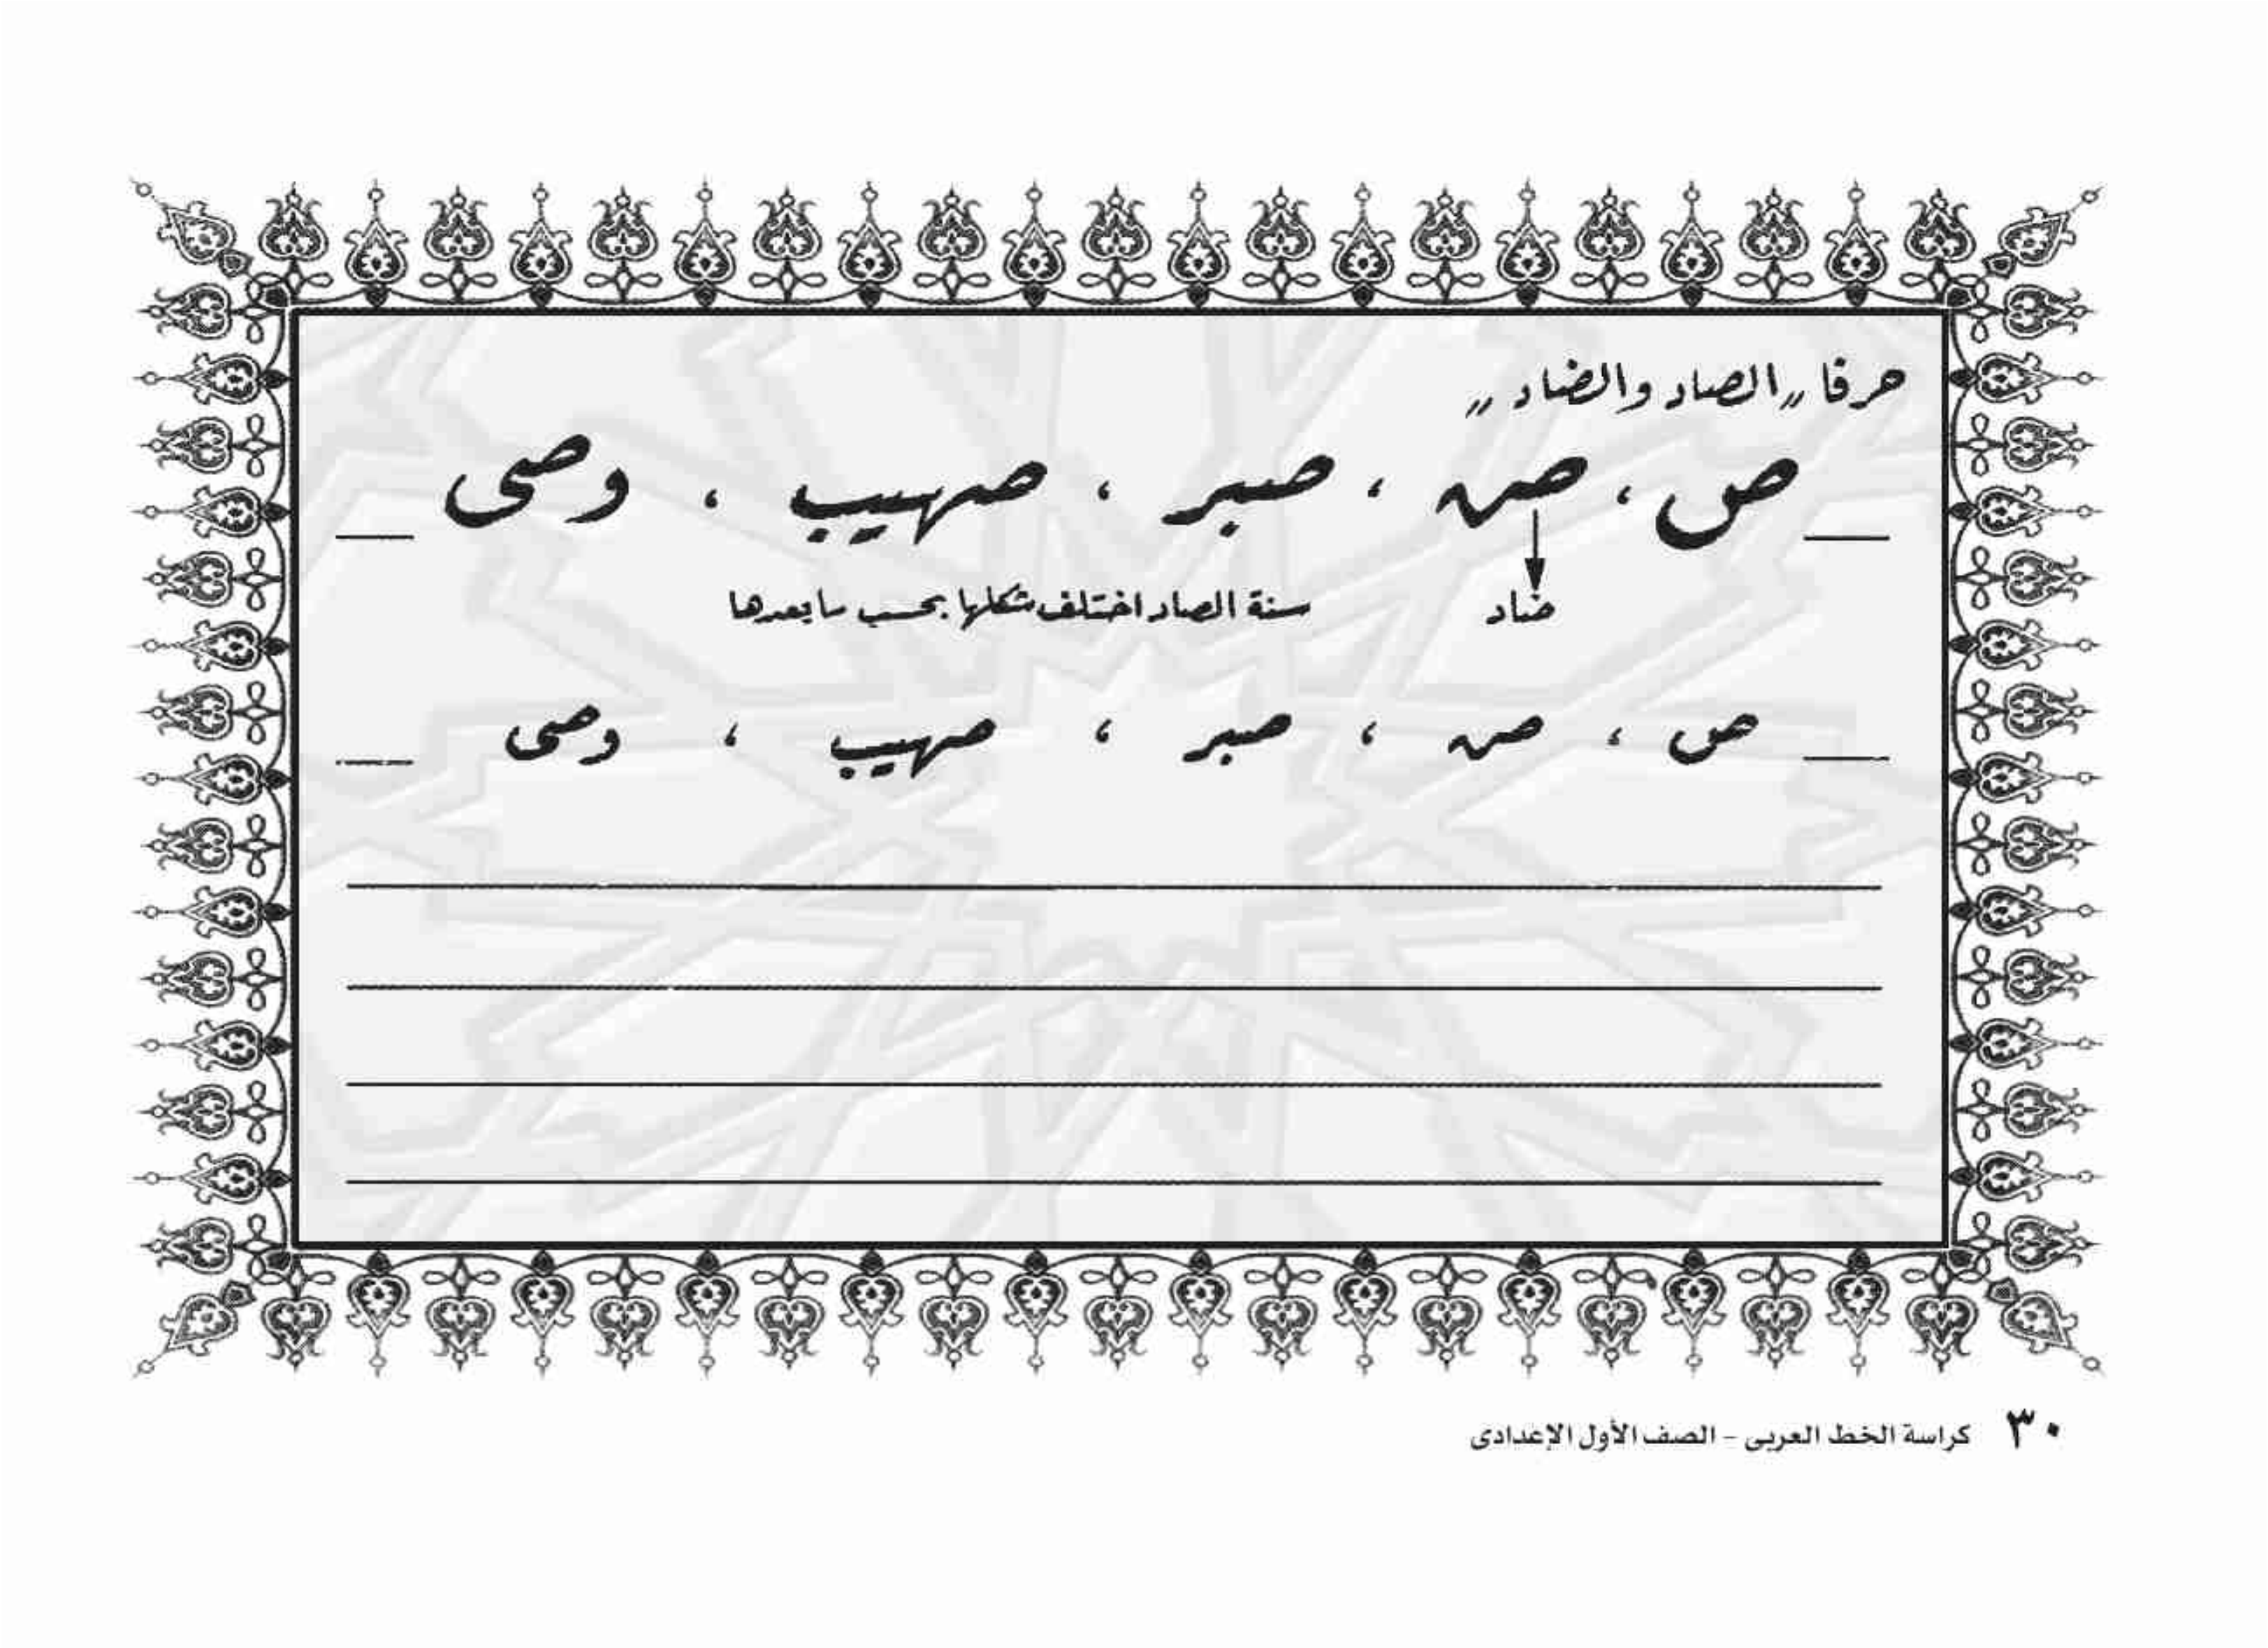 حرفا "الصاد والضاد"
ص ، ص ، صبر ، صهيب ، وصى
ضاد سنة الصاد اختلف شكلها بحسب ما بعدها
ص ، ص ، صبر ، صهيب ، وصى
٣٠ كراسة الخط العربى - الصف الأول الإعدادى